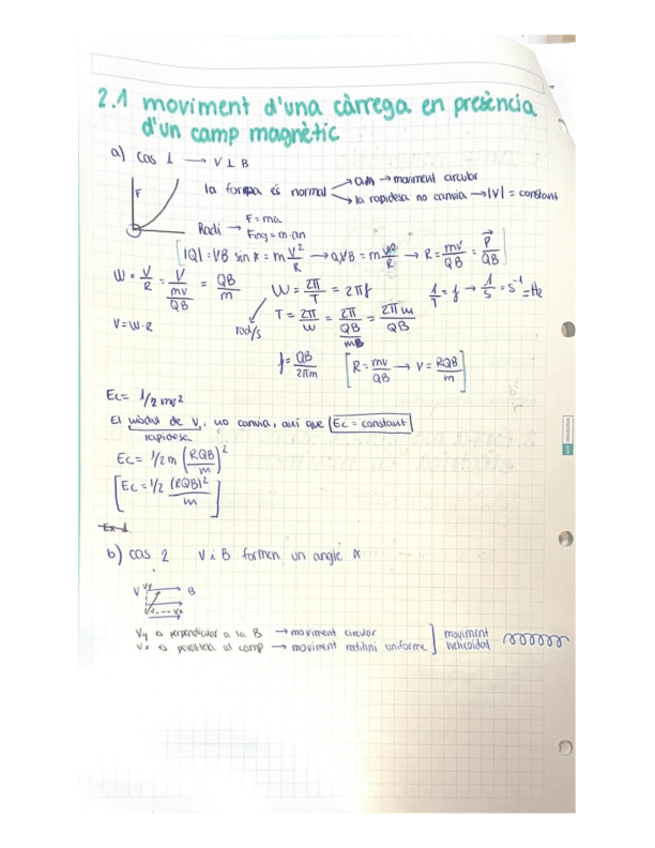 2.1 moviment d'una càrrega en presència
d'un camp magnètic
a) cas ⊥ → V ⊥ B
F
la força és normal → an → moviment circular
→ la rapidesa no canvia → |V| = constant
Radi → F = ma
Fmg = m·an
[|Q| = VB sin α = m V²/R → QVB = m V²/R → R = mv/QB = P⃗/QB]
W = V/R = V/(mv/QB) = QB/m
W = 2π/T = 2πf
1/T = f → 1/s = s⁻¹ = Hz
V = W·R
rad/s
T = 2π/W = 2π/(QB/m) = 2πm/QB
f = QB/2πm
[R = mv/QB → V = RQB/m]
Ec = 1/2 mv²
El mòdul de V, no canvia, així que Ec = constant
rapidesa
Ec = 1/2 m (RQB/m)²
[Ec = 1/2 (RQB)²/m]
Ex 1
b) cas 2 V i B formen un angle α
V Vy B
Vx
Vy es perpendicular a la B → moviment circular
Vx es paral·lela al camp → moviment rectilini uniforme
] moviment
helicoidal